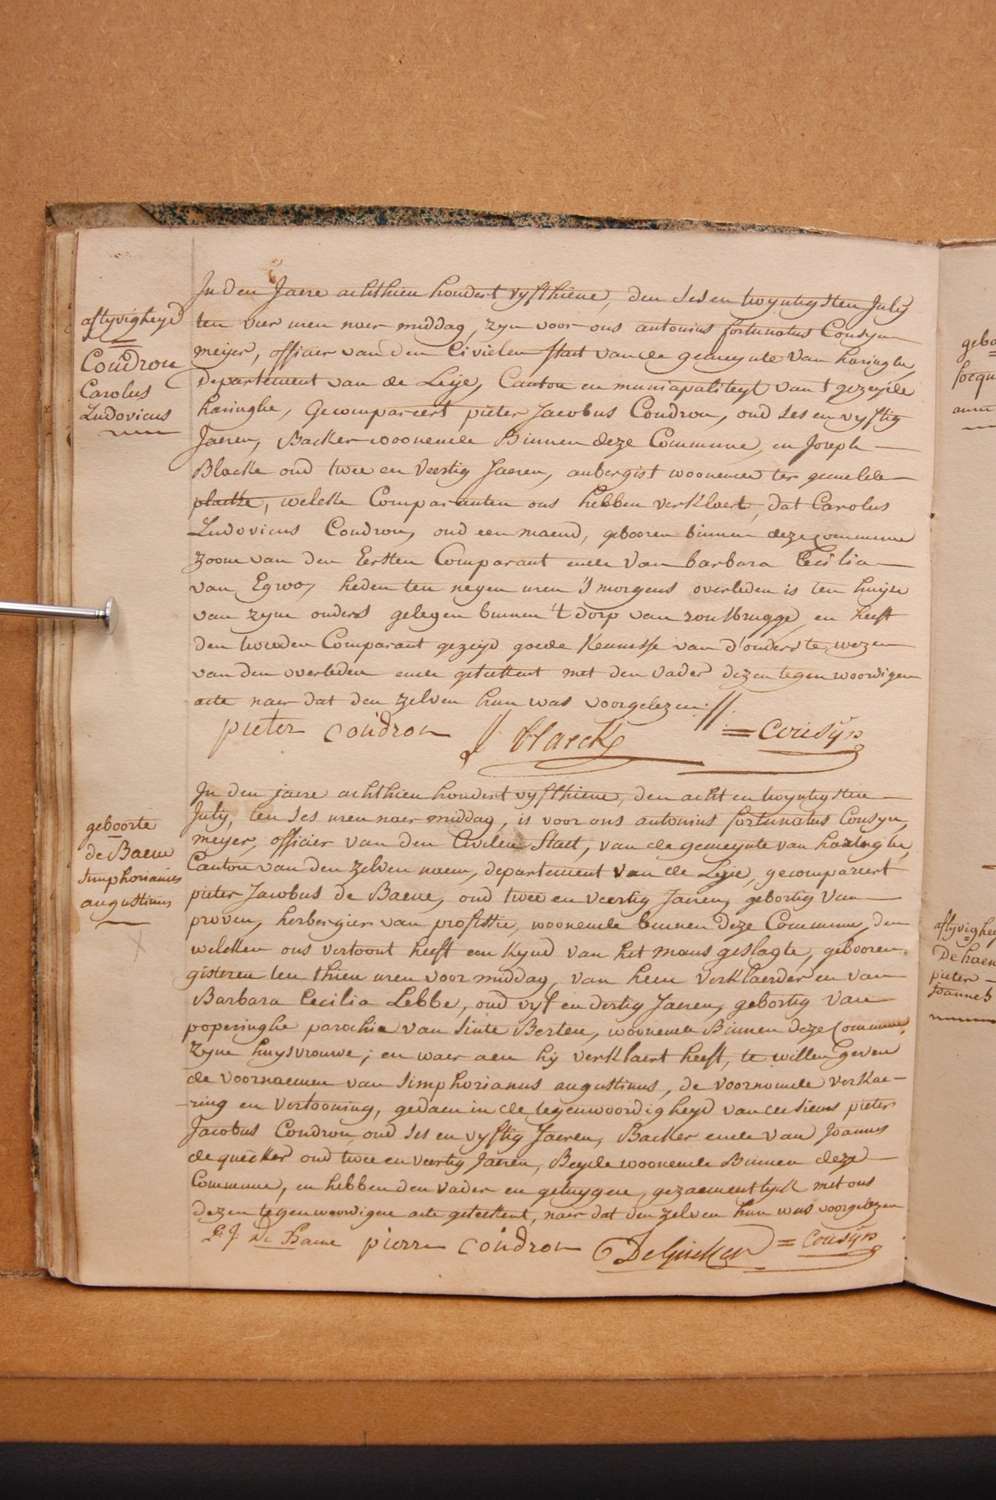 aflyvigheyd
Coudron
Carolus
Ludovicus
In den Jaere achthien hondert vyfthiene, den ses en twyntigsten July
ten vier uren naer middag, zyn voor ons antonius fortunatus Cousyn
meijer, officier van den Civielen staet van de gemeynte van haringhe,
departement van de Leije, Canton en municipaliteyt van t gezeyde
haringhe, Gecompareert pieter Jacobus Coudron, oud ses en vyftig
Jaeren, Backer woonende Binnen deze Commune, en Joseph
Blacke oud twee en Veertig Jaeren, aubergist woonende ter gemelde
plaetse, welcke Comparanten ons hebben verklaert, dat Carolus
Ludovicus Coudron, oud een maend, gebooren binnen deze commune
zoone van den Eersten Comparant ende van barbara Cecilia
van Egroo, heden ten negen uren 's morgens overleden is ten huyse
van zyne ouders gelegen binnen 't dorp van rousbrugge, en heeft
den tweeden Comparant gezeyd goede kennisse van d'ouders te wezen
van den overleden ende geteekent met den vader dezen tegenwoordigen
acte naer dat den zelven hun was voorgelezen
pieter coudron J blaeck = cousyn
geboorte
de Baene
Simphorianus
augustinus
In den jaere achthien hondert vyfthiene, den acht en twyntigsten
July, ten ses uren naer middag, is voor ons antonius fortunatus Cousyn,
meyer, officier van den Civilen Staet, van de gemeynte van haringhe,
Canton van den zelven naem, departement van de Leije, gecompareert
pieter Jacobus de Baene, oud twee en veertig Jaeren, gebortig van
proven, herbergier van professie, woonende binnen deze Commune, den
welcken ons vertoont heeft een kynd van het mans geslagte, gebooren
gisteren ten thien uren voor middag, van hem verklaerder en van
Barbara Cecilia Lebbe, oud vyf en dertig Jaeren, gebortig van
poperinghe parochie van sinte Berten, woonende Binnen deze Commune,
zyne huysvrouwe; en waer aen hy verklaert heeft, te willen geven
de voornaemen van simphorianus augustinus, de voornoemde verklae-
-ring en vertooning, gedaen in de tegenwoordigheyd van de sieurs pieter
Jacobus Coudron oud ses en vyftig Jaeren, Backer ende van Joannes
de quecker oud twee en veertig Jaeren, Beyde woonende Binnen deze
Commune, en hebben den vader en getuygen, gezaementlyk met ons
dezen tegenwoordigen acte geteekent, naer dat den zelven hun was voorgelezen
P. J. De Baene pierre coudron DeQuecker = cousyn
aflyvighey
De haen
pieter
Joannes